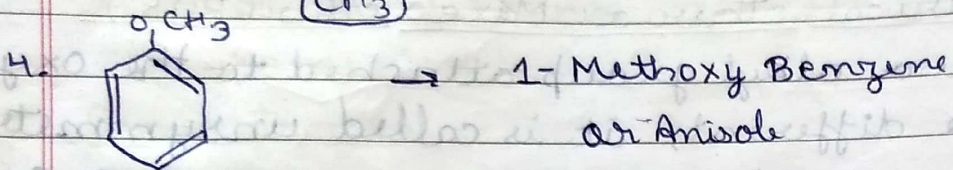 CH3
OCH3
4. → 1- Methoxy Benzene
or Anisole